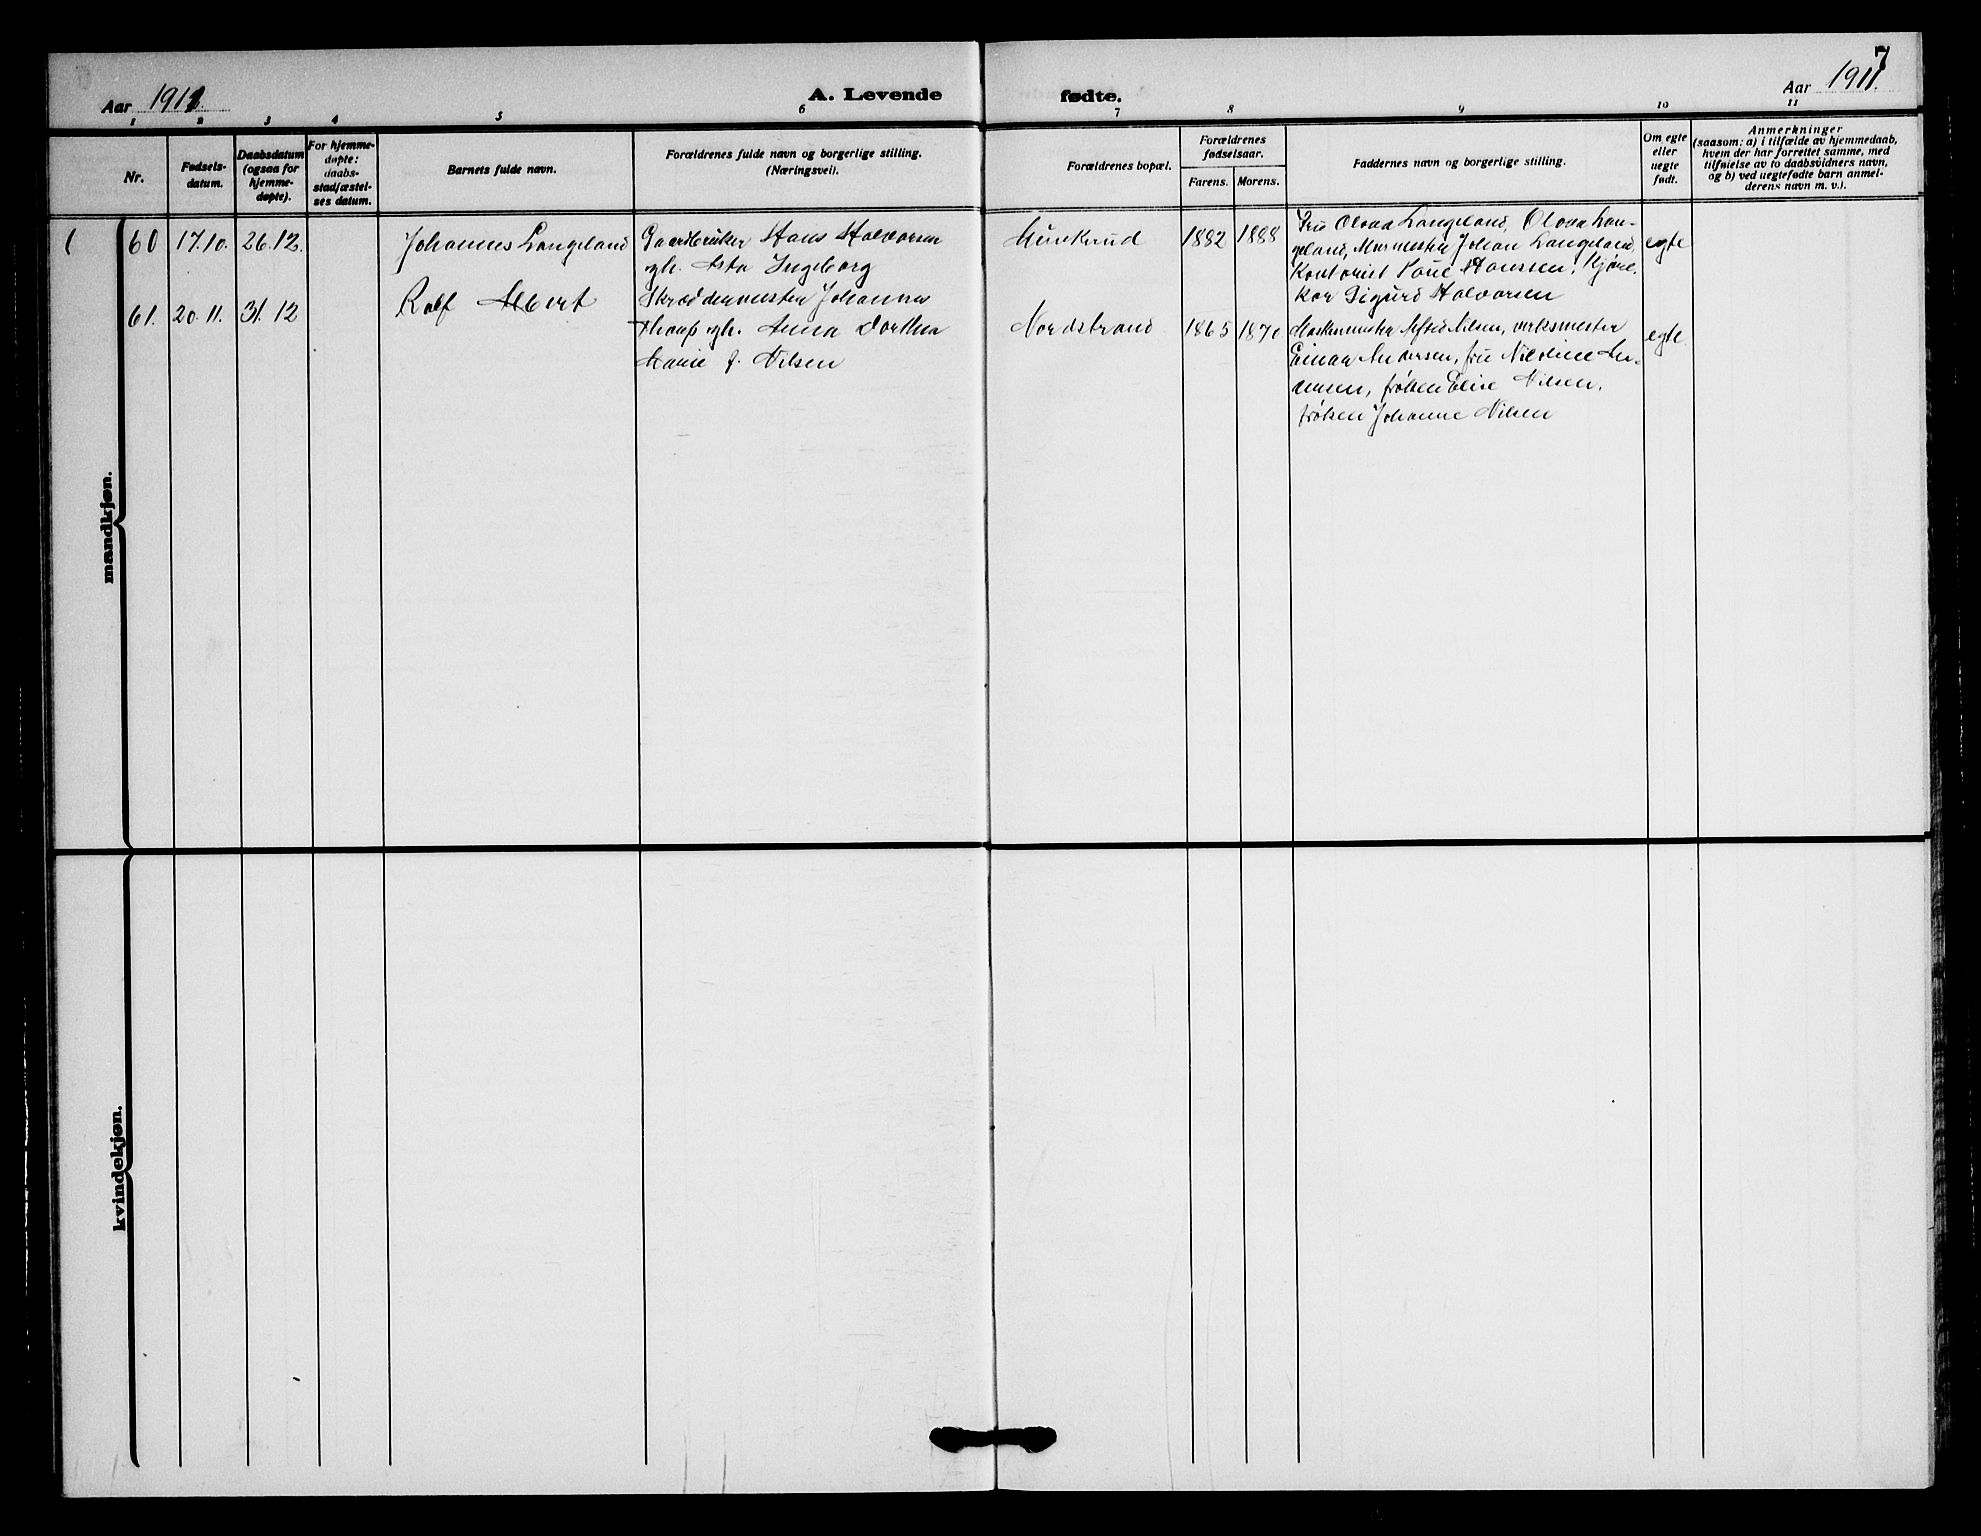 7
Aar 1911.
A. Levende fødte.
Aar 1911.
1 2 3 4 5 6 7 8 9 10 11
Nr.
Fødsels-
datum.
Daabsdatum
(ogsaa for
hjemme-
døpte).
For hjemme-
døpte:
daabs-
stadfæstel-
ses datum.
Barnets fulde navn.
Forældrenes fulde navn og borgerlige stilling.
(Næringsvei).
Forældrenes bopæl.
Forældrenes
fødselsaar.
Farens. Morens.
Faddernes navn og borgerlige stilling.
Om egte
eller
uegte
født.
Anmerkninger
(saasom: a) i tilfælde av hjemmedaab,
hvem der har forrettet samme, med
tilføielse av to daabsvidners navn,
og b) ved uegtefødte barn anmel-
derens navn m. v.).
mandkjøn.
60 17.10. 26.12.
Johannes Langeland
Gaardbruker Hans Halvorsen
og h. Asta Ingeborg
Munkerud
1882 1888
Fru Olava Langeland, Olova Lan-
geland, Murmester Johan Langeland,
Kontorist Hanssen,
Sigurd Halvorsen
egte
61. 20.11. 31.12
Rolf Albert
Skræddermester Johannes
og h. Anna Dorthea
Marie f. Nilsen
Nordstrand
1865 1870
Alfred Nilsen, verksmester
Einar Andersen, fru Nicoline
frøken Elise Nilsen,
frøken Johanne Nilsen
egte.
kvindekjøn.